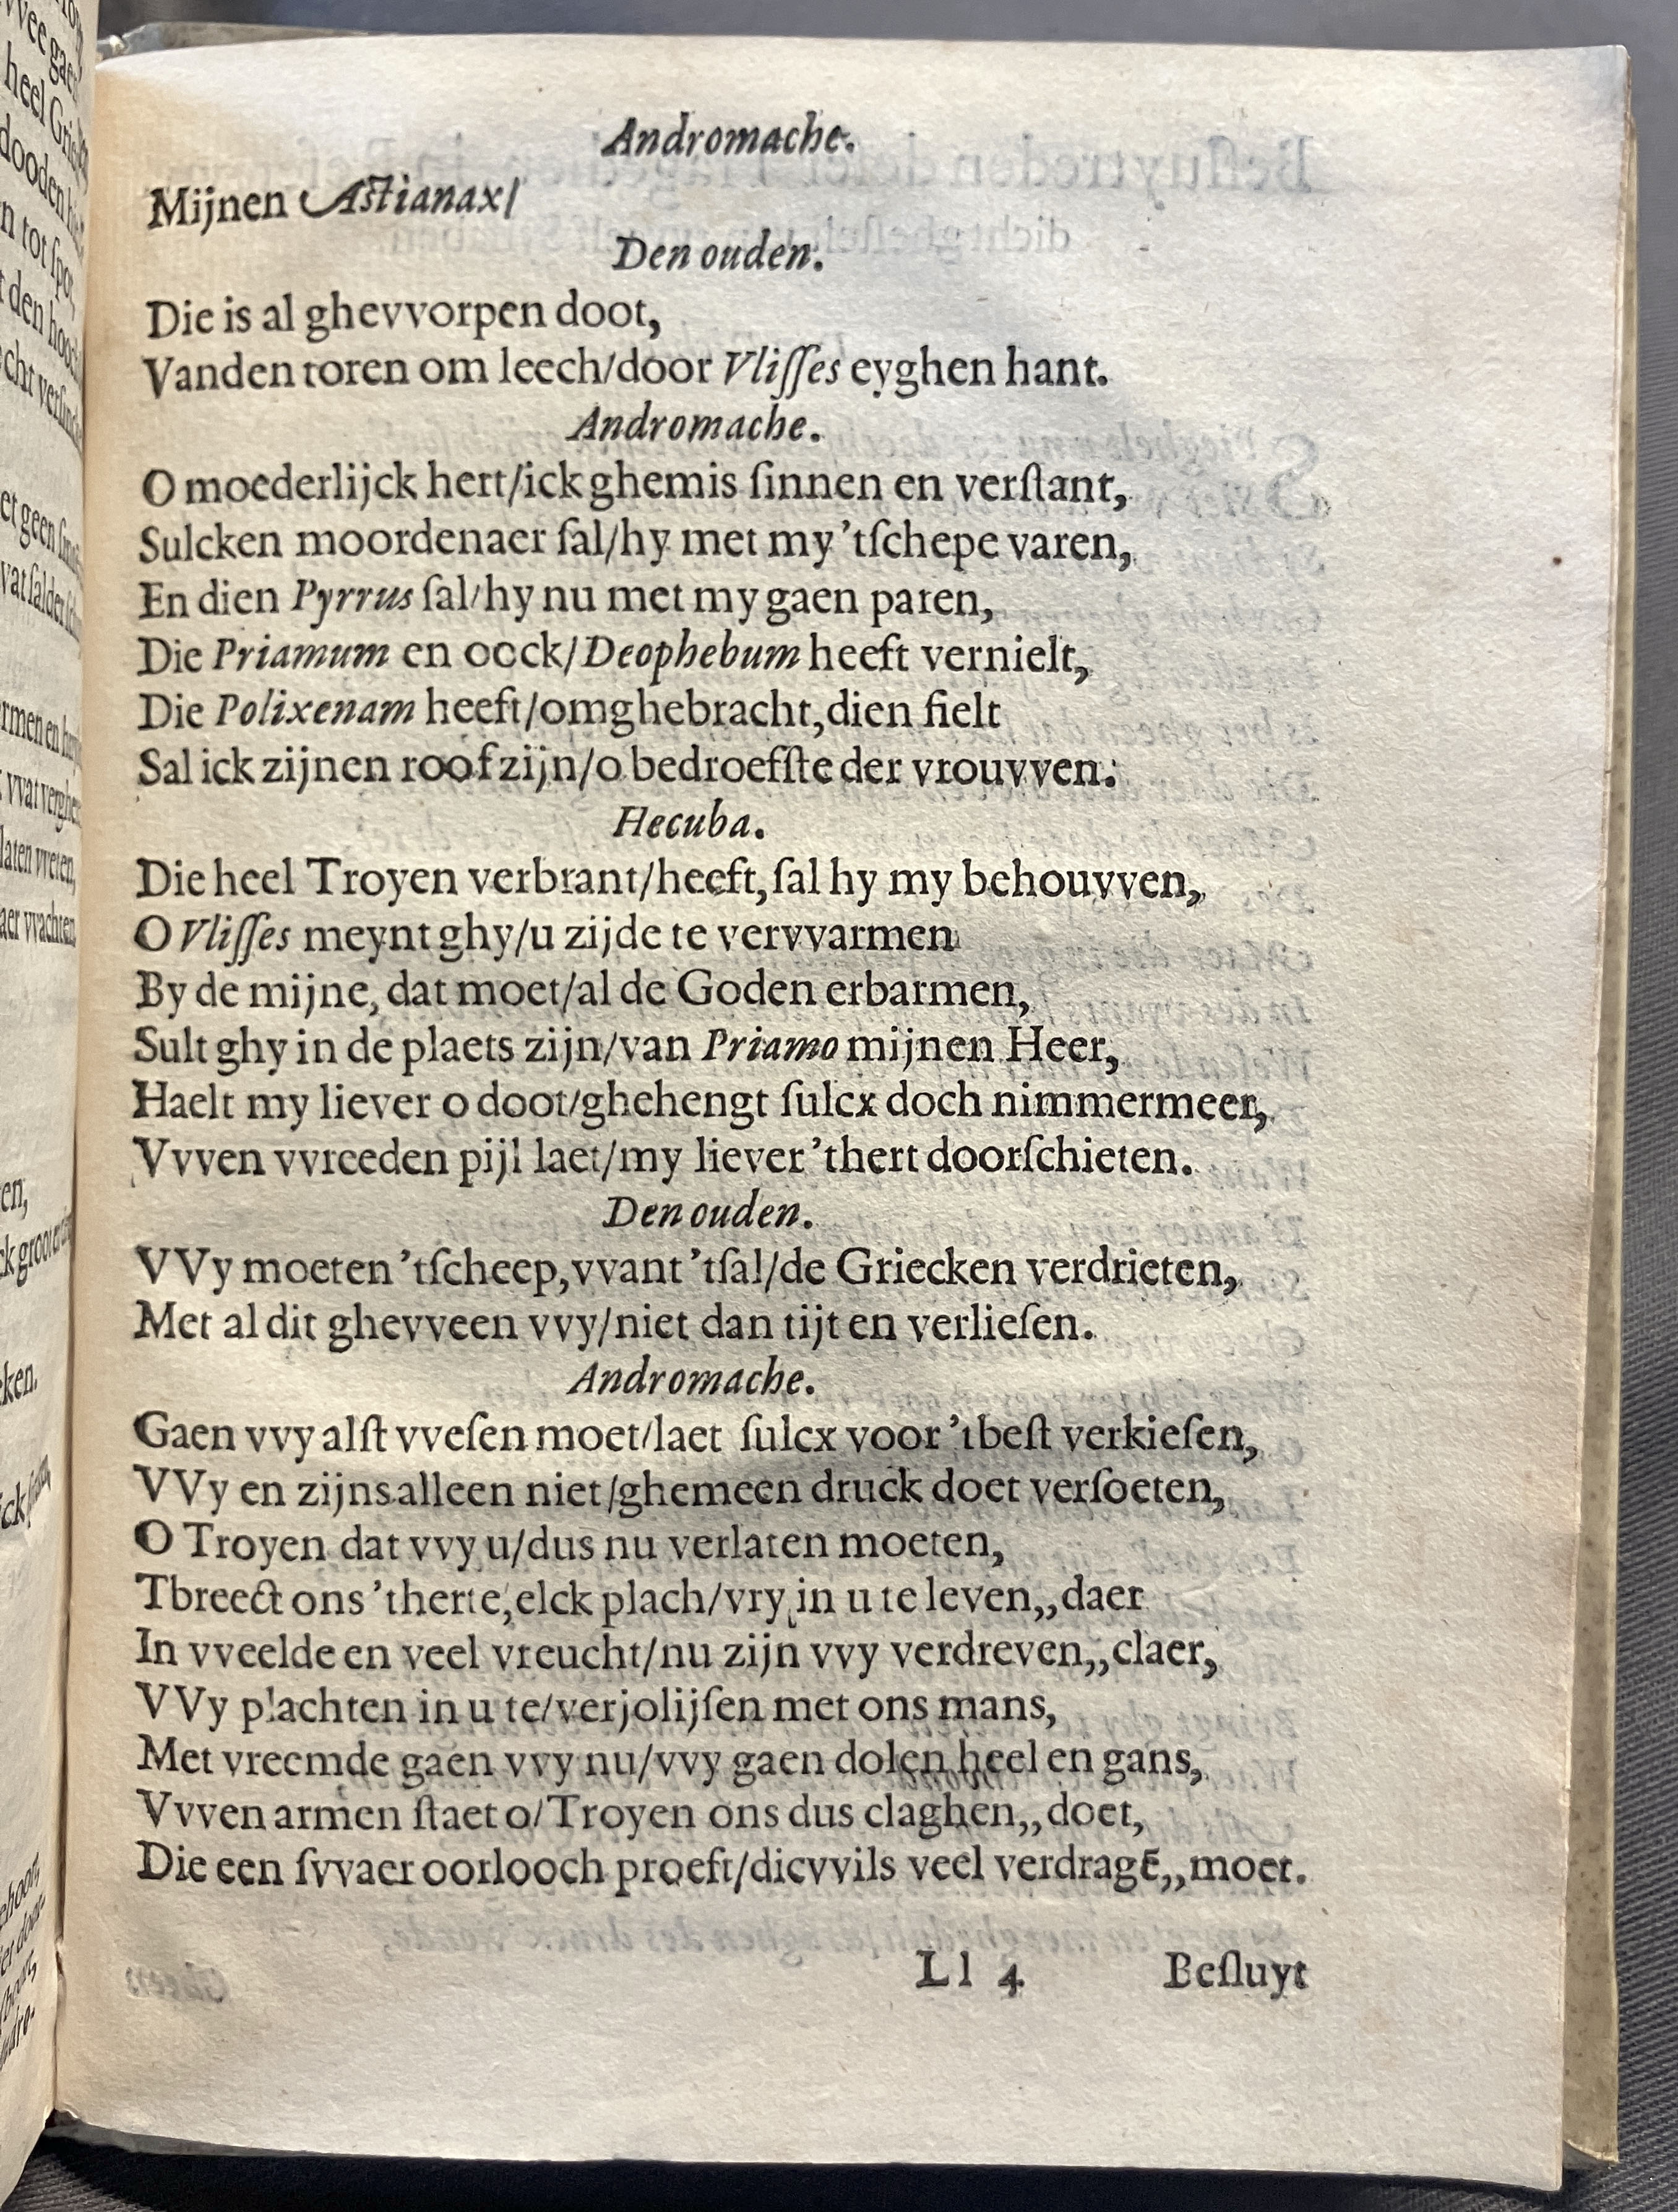 Andromache.
Mijnen Astianax/
Den ouden.
Die is al ghevvorpen doot,
Vanden toren om leech/door Vlisses eyghen hant.
Andromache.
O moederlijck hert/ick ghemis sinnen en verstant,
Sulcken moordenaer sal/hy met my 'tschepe varen,
En dien Pyrrus sal/hy nu met my gaen paren,
Die Priamum en oock/Deophebum heeft vernielt,
Die Polixenam heeft/omghebracht, dien fielt
Sal ick zijnen roof zijn/o bedroefste der vrouvven:
Hecuba.
Die heel Troyen verbrant/heeft, sal hy my behouvven,
O Vlisses meynt ghy/u zijde te vervvarmen
By de mijne, dat moet/al de Goden erbarmen,
Sult ghy in de plaets zijn/van Priamo mijnen Heer,
Haelt my liever o doot/ghehengt sulcx doch nimmermeer,
Vvven vvreeden pijl laet/my liever 'thert doorschieten.
Den ouden.
VVy moeten 'tscheep, vvant 'tsal/de Griecken verdrieten,
Met al dit ghevveen vvy/niet dan tijt en verliesen.
Andromache.
Gaen vvy alst vvesen moet/laet sulcx voor 'tbest verkiesen,
VVy en zijns alleen niet/ghemeen druck doet versoeten,
O Troyen dat vvy u/dus nu verlaten moeten,
Tbreect ons 'therte, elck plach/vry in u te leven,, daer
In vveelde en veel vreucht/nu zijn vvy verdreven,, claer,
VVy plachten in u te/verjolijsen met ons mans,
Met vreemde gaen vvy nu/vvy gaen dolen heel en gans,
Vvven armen staet o/Troyen ons dus claghen,, doet,
Die een svvaer oorlooch proeft/dicvvils veel verdragē,, moet.
Ll 4
Besluyt